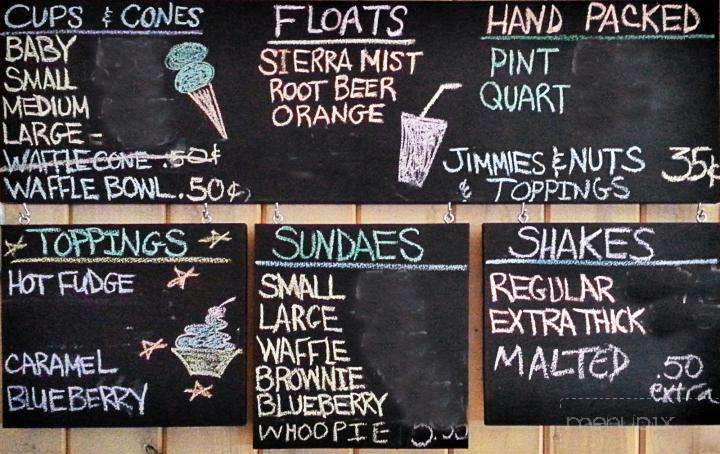 CUPS & CONES
BABY
SMALL
MEDIUM
LARGE -
WAFFLE CONE .50¢
WAFFLE BOWL .50¢
FLOATS
SIERRA MIST
ROOT BEER
ORANGE
HAND PACKED
PINT
QUART
JIMMIES & NUTS 35¢
& TOPPINGS
TOPPINGS
HOT FUDGE
CARAMEL
BLUEBERRY
SUNDAES
SMALL
LARGE
WAFFLE
BROWNIE
BLUEBERRY
WHOOPIE
SHAKES
REGULAR
EXTRA THICK
MALTED .50
extra
menupix